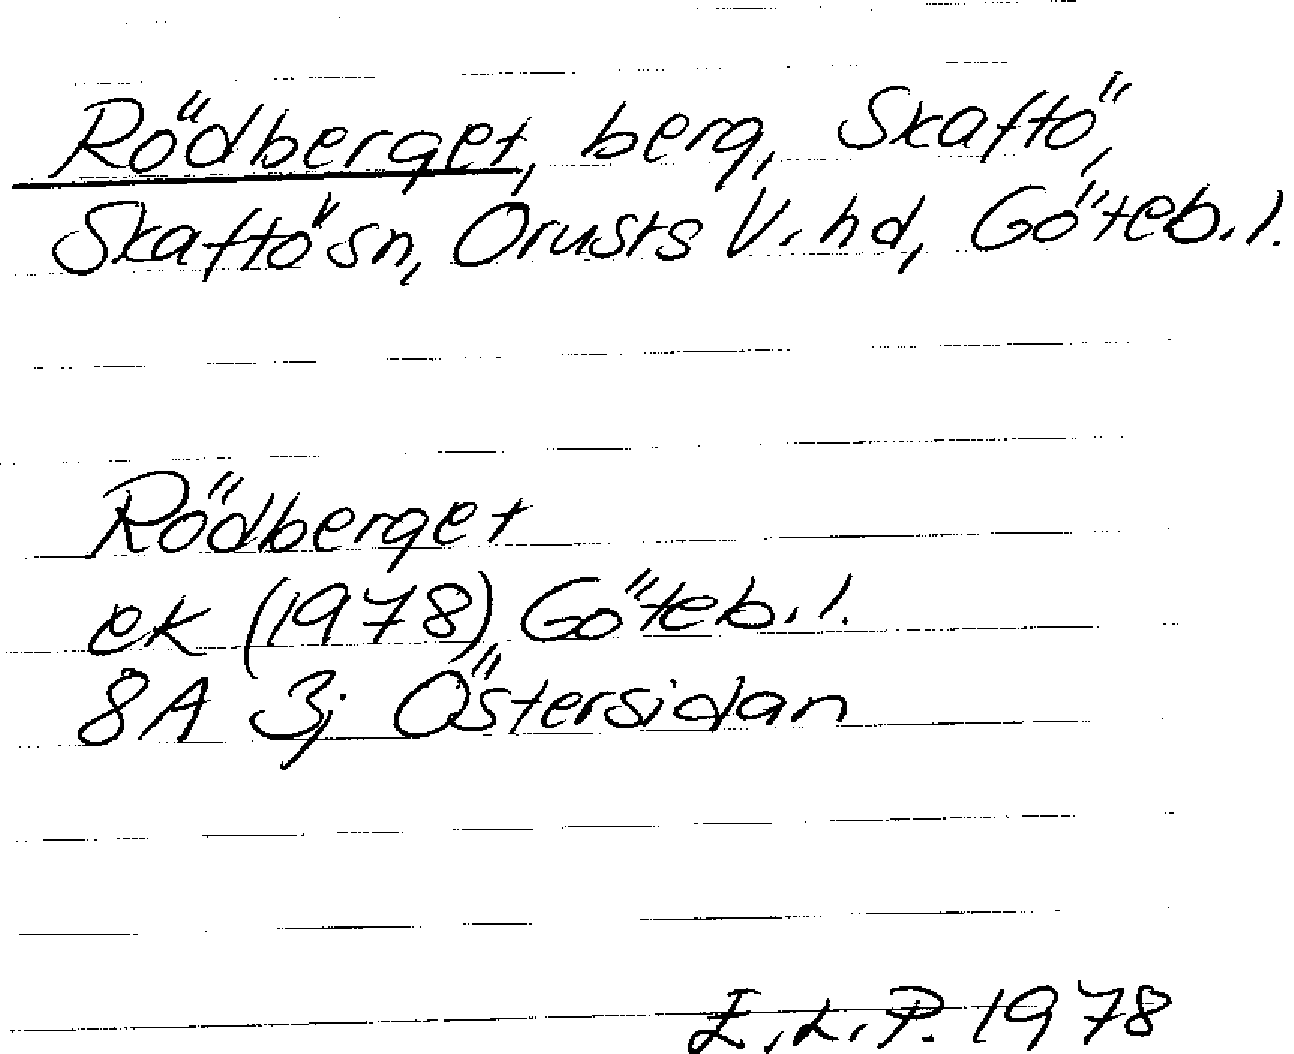 Rödberget, berg, Skaftö,
Skaftö sn, Orusts V. hd, Göteb. l.
Rödberget
ek (1978), Göteb. l.
8A 3j Östersidan
E.L.P. 1978